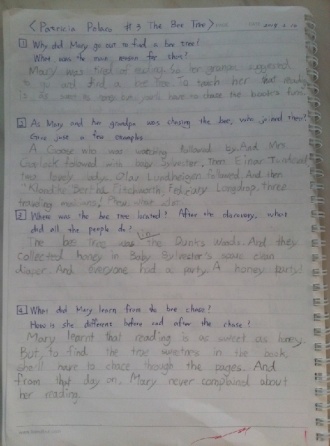 < Patricia Polacco #3 The Bee Tree >
1 Why did Mary go out to find a bee tree?
What was the main reason for this?
Mary was tired of reading. So her grandpa suggested
to go and find a bee tree to teach her that reading
is
2 As Mary and her grandpa was chasing the bees, who joined them?
Give just a few examples.
A Goose who was followed by And Mrs.
followed with baby Sylvester. Then Einar
two lovely ladys Olav Lundheigen followed. And then
Klondike Bertha Fitchworth, Feduciary Longdrop, three
traveling musicians.
3 Where was the bee tree located? After the discovery, what
did all the people do?
The bee Tree was in the Dunks Woods. And they
collected honey in Baby Sylvester's spare clean
diaper. And everyone had a party. A honey party!
4 What did Mary learn from the bee chase?
How is she different before and after the chase?
Mary learnt that reading is as sweet as honey.
But, to find the true sweetness in the book
she'll have to chase through the pages. And
from that day on, Mary never complained about
her reading.